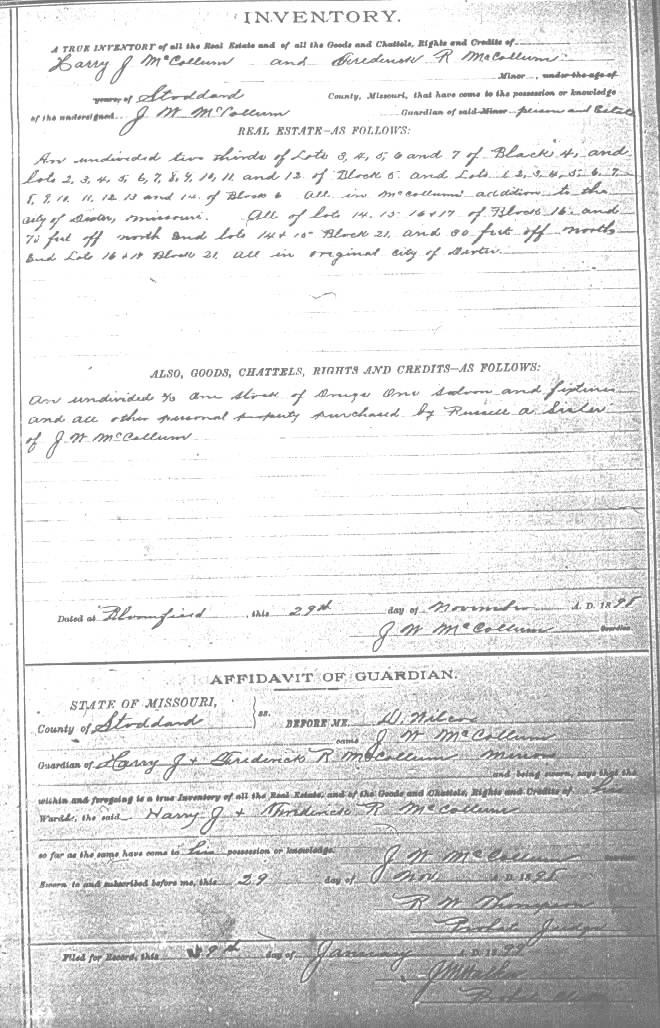 INVENTORY.
A TRUE INVENTORY of all the Real Estate and of all the Goods and Chattels, Rights and Credits of
Harry J McCollum and Frederick R McCollum
Minor, under the age of
years, of Stoddard County, Missouri, that have come to the possession or knowledge
of the undersigned J W McCollum Guardian of said Minor person and Estate
REAL ESTATE—AS FOLLOWS:
An undivided two thirds of Lots 3, 4, 5, 6 and 7 of Block 4, and
lots 2, 3, 4, 5, 6, 7, 8, 9, 10, 11 and 12 of Block 5 and Lots 1 2, 3, 4, 5, 6, 7,
8, 9, 10, 11, 12 13 and 14 of Block 6 All in McCollums addition to the
City of Dexter, Missouri. All of lots 14. 15 16 & 17 of Block 16 and
70 feet off north End lots 14 & 15 Block 21, and 80 feet off North
End Lots 16 & 17 Block 21 all in original City of Dexter.
ALSO, GOODS, CHATTELS, RIGHTS AND CREDITS—AS FOLLOWS:
An undivided 2/3 Stock of Drugs One Saloon and fixtures
and all other personal property purchased by Russell a Sister
of J W McCollum
Dated at Bloomfield, this 29th day of November A. D. 1898
J W McCollum Guardian
AFFIDAVIT OF GUARDIAN.
STATE OF MISSOURI,
County of Stoddard ss. BEFORE ME D. Wilcox
came J W McCollum
Guardian of Harry J & Frederick R McCollum Minors
and being sworn, says that the
within and foregoing is a true Inventory of all the Real Estate, and of the Goods and Chattels, Rights and Credits of his
Wards, the said Harry J & Frederick R McCollum
so far as the same have come to his possession or knowledge.
J W McCollum Guardian
Sworn to and subscribed before me, this 29 day of Nov A. D. 1898
R W Thompson
Probate Judge
Filed for Record, this 9th day of January A. D. 1899
J M Walker
Probate